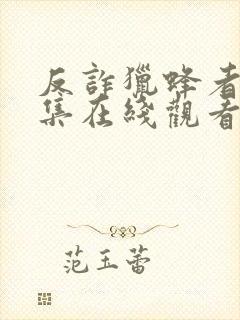 反詐獵蜂者
集在綫觀看
范玉蕾